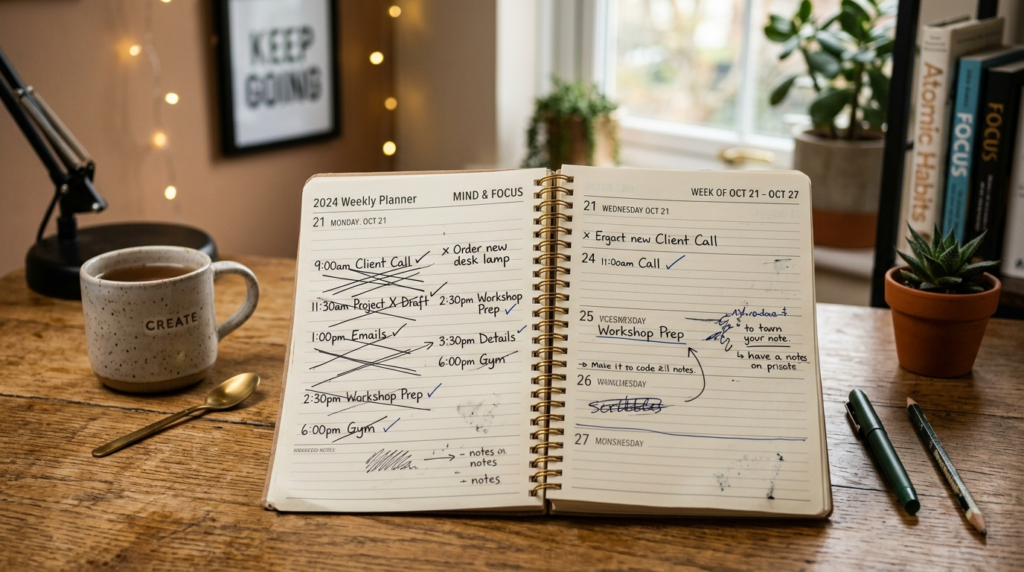 KEEP
GOING
CREATE
2024 Weekly Planner
MIND & FOCUS
21 MONDAY. OCT 21
9:00am Client Call ✓
x Order new
desk lamp
11:30am Project X Draft ✓
2:30pm Workshop
Prep ✓
1:00pm Emails ✓
3:30pm Details ✓
6:00pm Gym
2:30pm Workshop Prep ✓
6:00pm Gym ✓
→ - notes on
notes
- notes
WEEK OF OCT 21 – OCT 27
21 WEDNESDAY OCT 21
x Ergact new Client Call
24 11:00am Call ✓
25
Workshop Prep
to town
your note.
↳ have a notes
on private
→ Make it to code 211 notes.
26
scribbles
27 MONSNESDAY
Atomic Habits
FOCUS
FOCUS